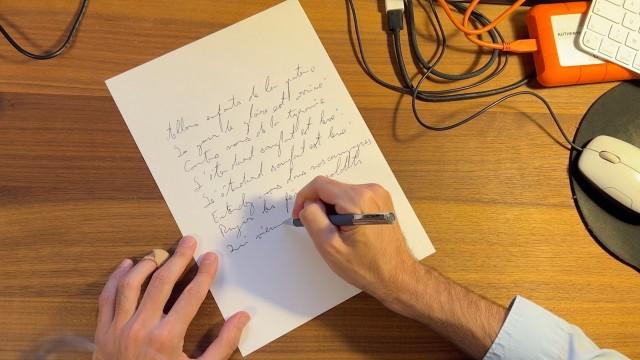 Allons enfants de la patrie
Le jour de gloire est arrivé
Contre nous de la tyrannie
L'étendard sanglant est levé
L'étendard sanglant est levé
Entendez vous dans nos campagnes
Mugir les soldats
Qui